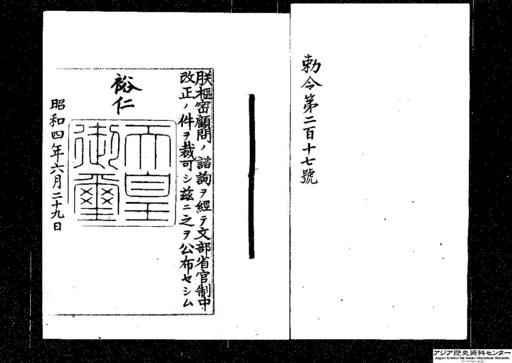 勅令第二百十七號
朕樞密顧問ノ諮詢ヲ經テ文部省官制中
改正ノ件ヲ裁可シ茲ニ之ヲ公布セシム
裕仁
天皇
御璽
昭和四年六月二十九日
アジア歴史資料センター
Japan Center for Asian Historical Records